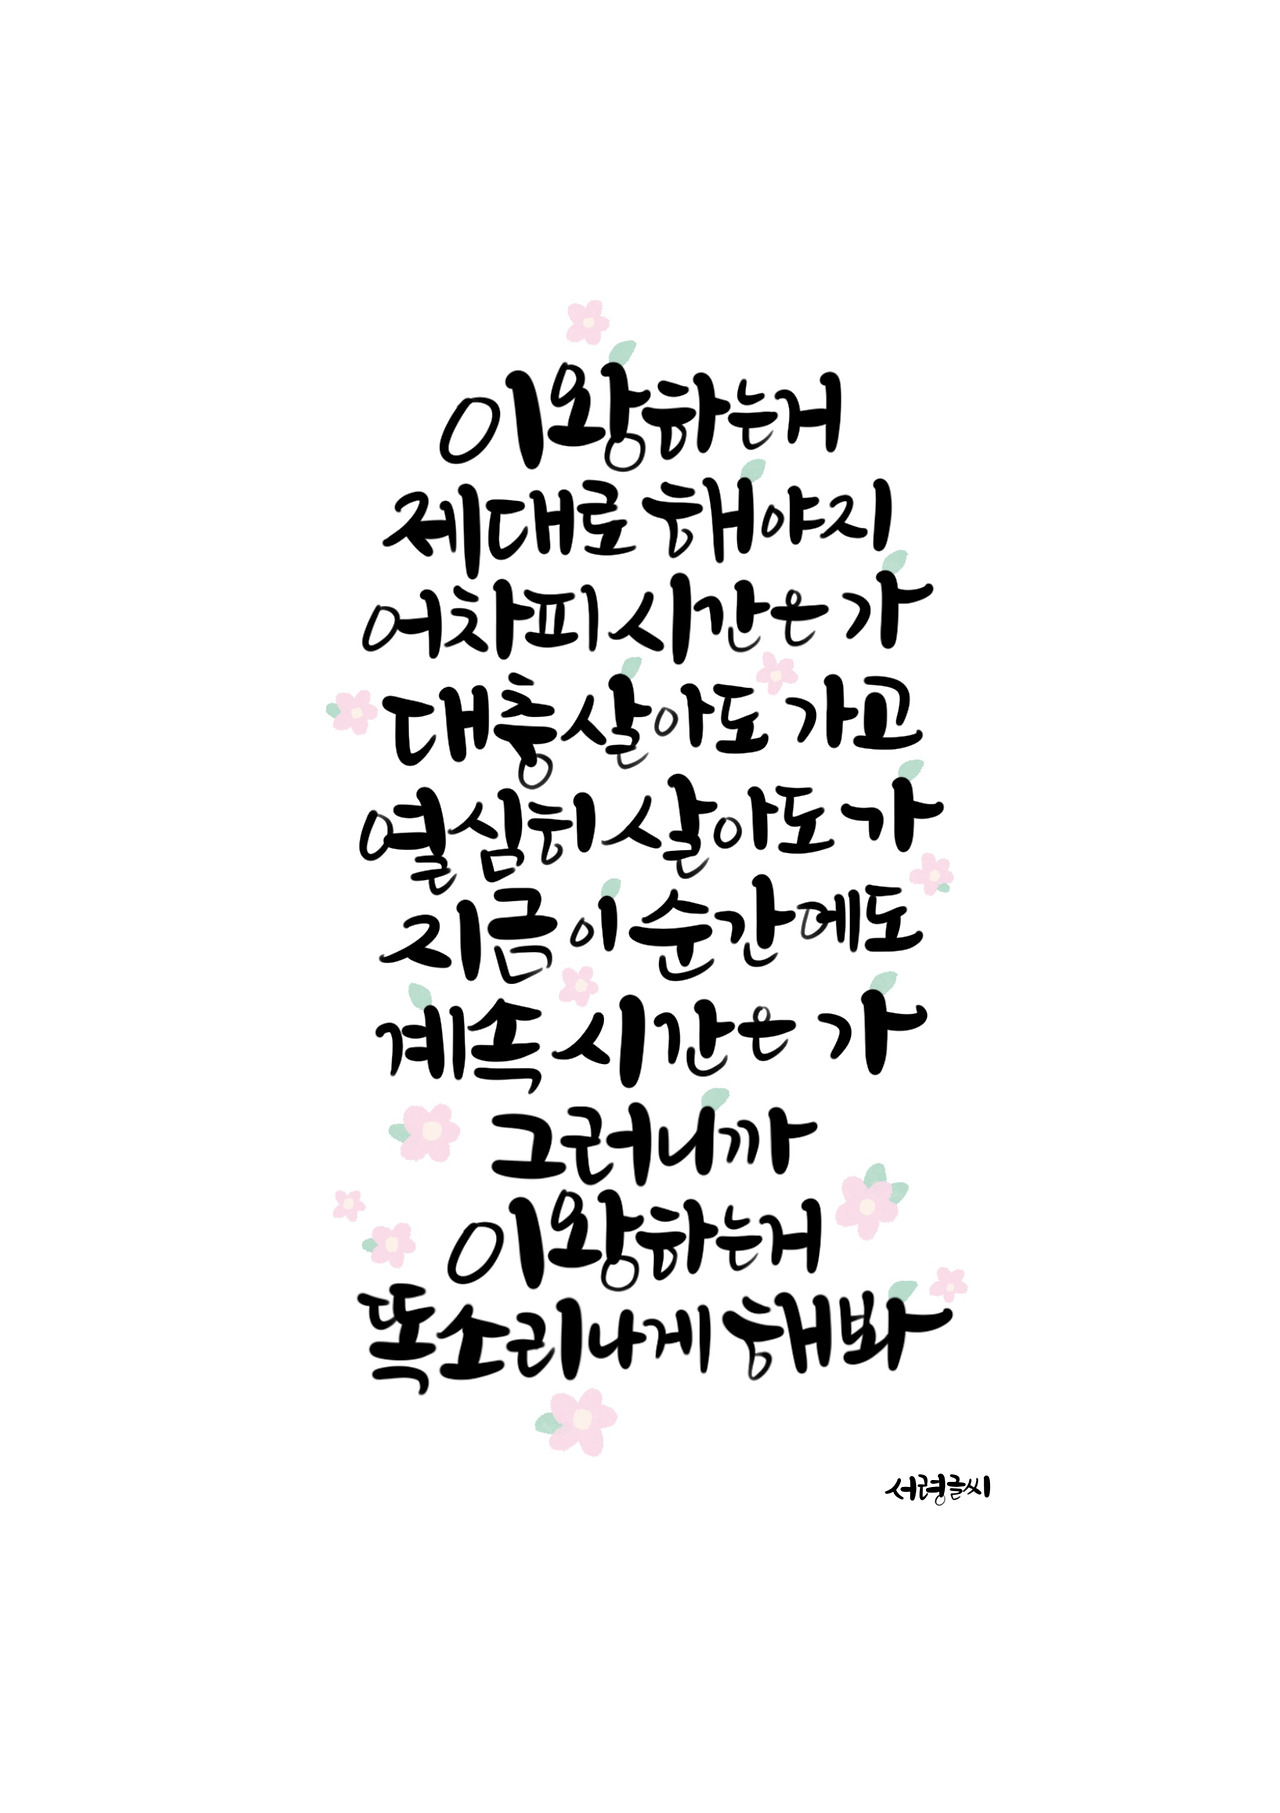 이왕하는거
제대로 해야지
어차피 시간은 가
대충 살아도 가고
열심히 살아도 가
지금 이 순간에도
계속 시간은 가
그러니까
이왕하는거
똑소리나게 해봐
서령글씨